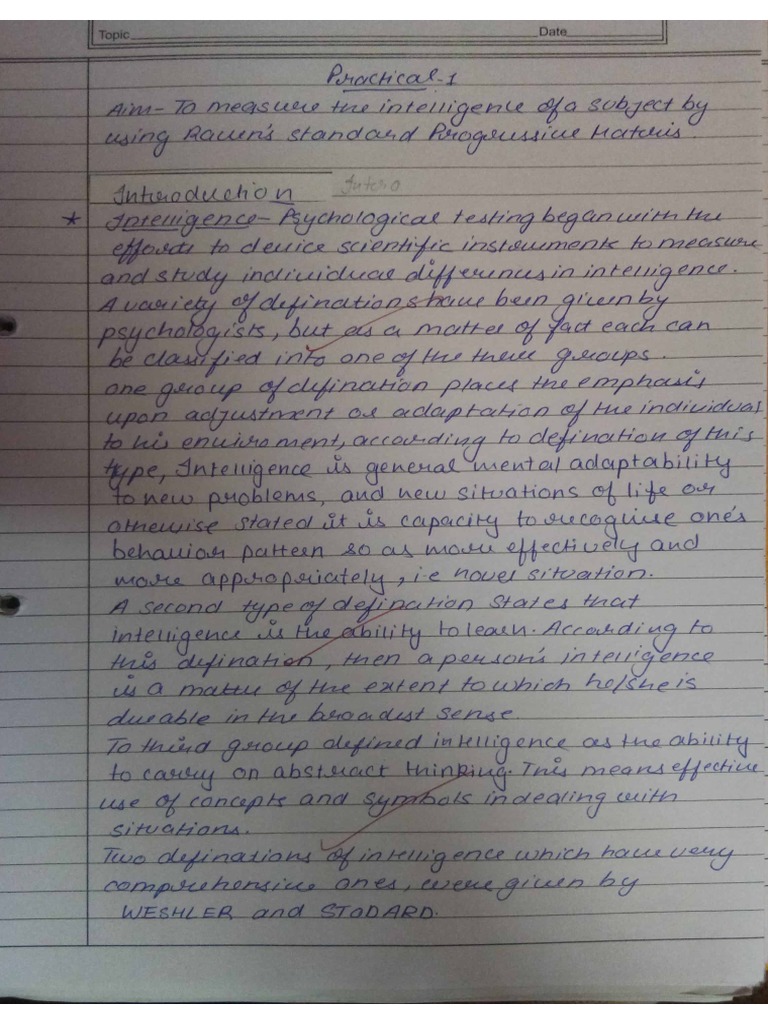 Topic Date
Practical-1
Aim- To measure the intelligence of a subject by
using Raven's Standard Progressive Matris.
Introduction Intro
* Intelligence - Psychological testing began with the
efforts to device scientific instruments to measure
and study individual differences in intelligence.
A variety of definations have been given by
psychologists, but as a matter of fact each can
be classified into one of the three groups.
one group of defination places the emphasis
upon adjustment or adaptation of the individual
to his enviroment, according to defination of this
type, Intelligence is general mental adaptability
to new problems, and new situations of life or
otherwise stated it is capacity to recognise one's
behavior pattern so as more effectively and
more appropriately, i.e novel situation.
A second type of defination states that
intelligence is the ability to learn. According to
this defination, then a person's intelligence
is a matter of the extent to which he/she is
dueable in the broadest sense.
To third group defined intelligence as the ability
to carry on abstract thinking. This means effective
use of concepts and symbols in dealing with
situations.
Two definations of intelligence which have very
comprehensive ones, were given by
WESHLER and STODARD.